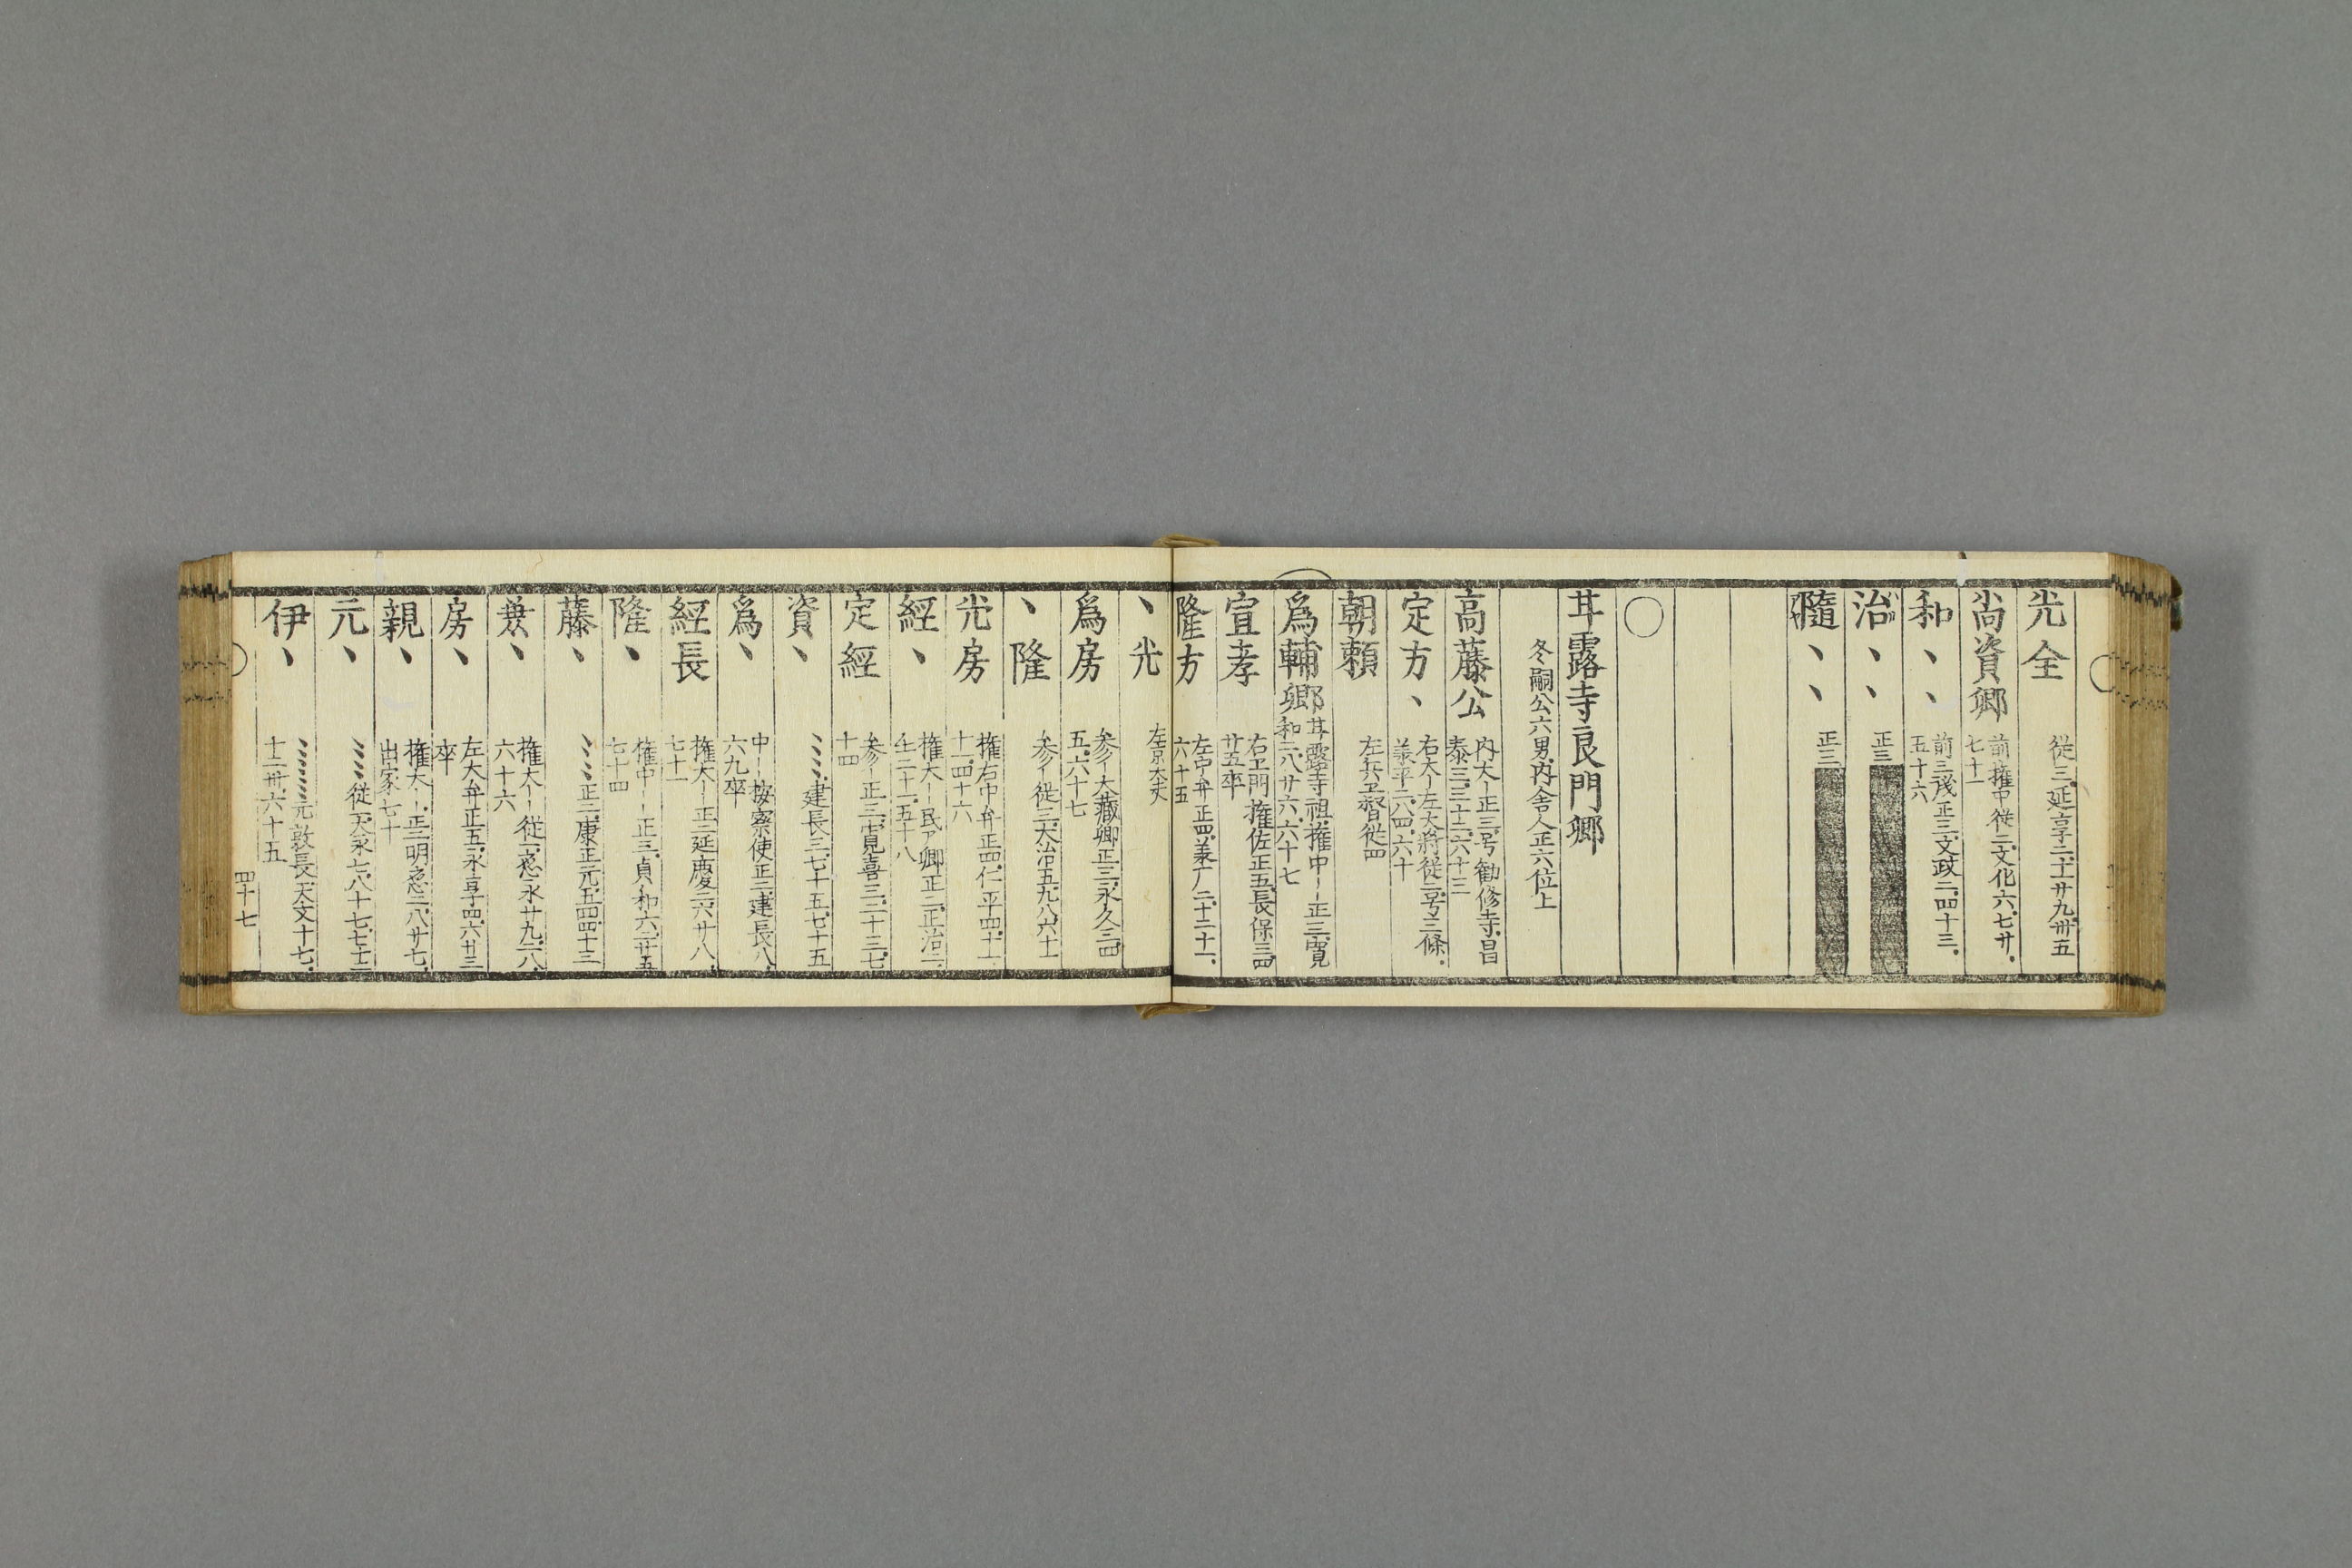 光全 従三、延享二、十一廿九、卅五
尚資卿 前権中従二、文化六、七廿、
七十一
和、、 前三茂正三、文政二、四十三、
五十六
治、、 正三
隨、、 正三
〇
甘露寺良門卿
冬嗣公六男、内舎人正六位上
高藤公 内大｜正三、号勧修寺、昌
泰三、三十二、六十三
定方、 右大｜左大将従二、号三條、
義平二、八四、六十
朝頼 左兵卫督従四
為輔卿 甘露寺祖、権中｜｜正三、寛
和二、八廿六、六十七
宣孝 右卫門権佐正五、長保三、四
廿五卒
隆方 左中弁正四、義广二、十二十一、
六十五
、光 左京大夫
爲房 参｜大蔵卿正三、永久三、四
五、六十七
、隆 参｜従三、大治五、九八、六十一
光房 権右中弁正四、仁平四、十一
十一、四十六
経、 権大｜民ア卿正二、正治二、
壬二十一、五十八
定経 参｜正三、寛喜三、二十三、七
十四
資、 、、、建長三、七十五、七十五
爲、 中｜｜按察使正二、建長八、
六九卒
経長 権大｜正二延慶二、六廿八、
七十一
隆、 権中｜｜正三、貞和六、二廿五
七十四
藤、 、、、正二、康正元、五四、四十三
兼、 権大｜従一、應永廿九、二八、
六十六
房、 左大弁正五、永享四、六廿三
卒
親、 権大｜正二明應二、八廿七、
出家七十
元、 、、、従一大永七、八十七、七十一
伊、 、、、、、元敦長、天文十七、
十二卅、六十五
四十七